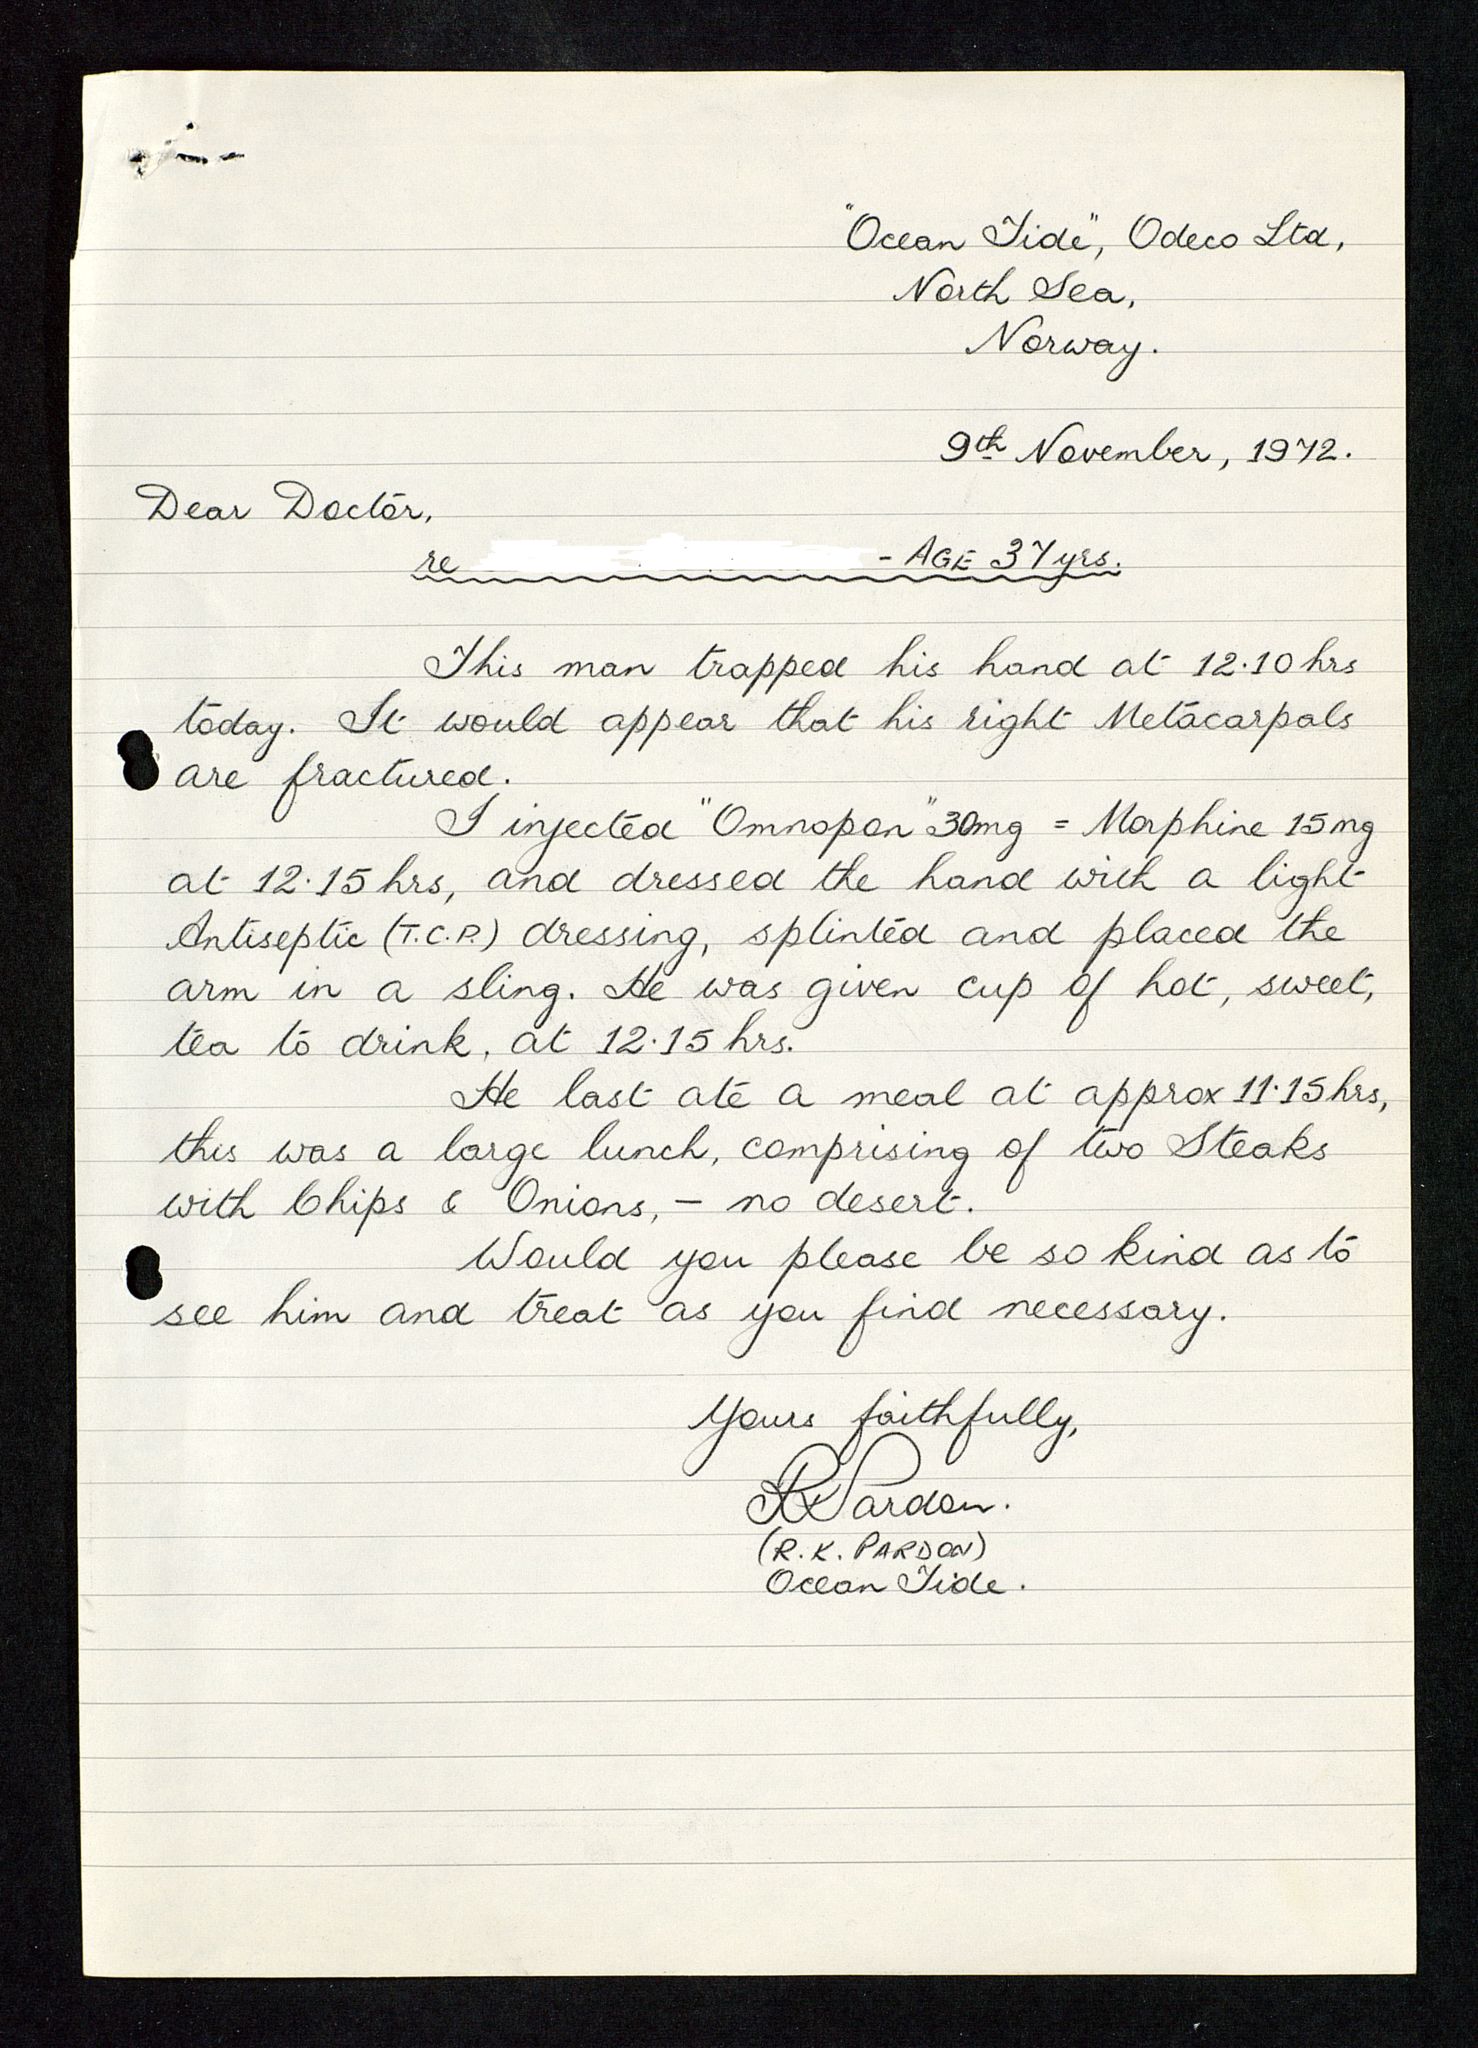 "Ocean Tide", Odeco Ltd,
North Sea,
Norway.
9th November, 1972.
Dear Doctor,
re - AGE 37 yrs.
This man trapped his hand at 12.10 hrs
today. It would appear that his right Metacarpals
are fractured.
I injected "Omnopon" 30mg = Morphine 15 mg
at 12.15 hrs, and dressed the hand with a light
Antiseptic (T.C.P.) dressing, splinted and placed the
arm in a sling. He was given cup of hot, sweet,
tea to drink, at 12.15 hrs.
He last ate a meal at approx 11.15 hrs,
this was a large lunch, comprising of two Steaks
with Chips & Onions, - no desert.
Would you please be so kind as to
see him and treat as you find necessary.
Yours faithfully,
RK Pardon.
(R. K. PARDON)
Ocean Tide.